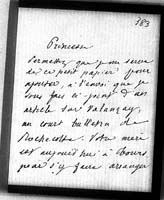 183
Princesse
Permettez que je me serve
de ce petit papier pour
ajouter, à l'envoi que je
vous fais ci-joint d'un
article sur Valançay,
un court bulletin de
Rochecotte. Votre mère
est aujourd'hui à Tours
pour s'y faire arranger